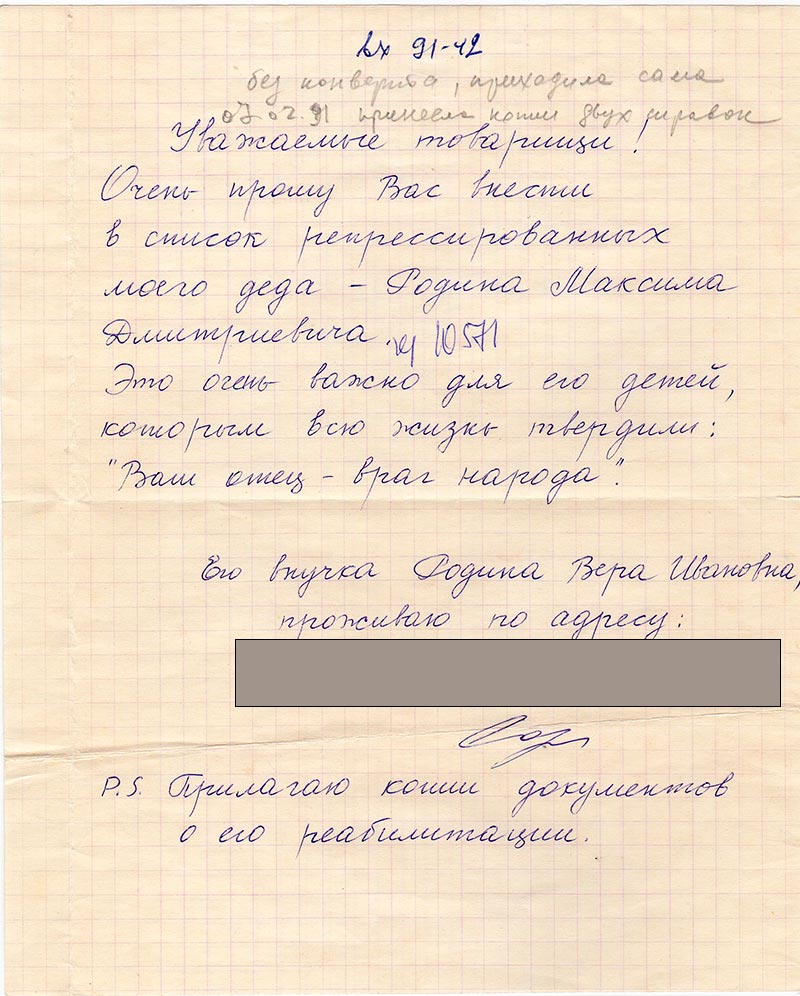 вх 91-42
без конверта, приходила сама
07.02.91 принесла копии двух справок
Уважаемые товарищи!
Очень прошу Вас внести
в список репрессированных
моего деда – Родина Максима
Дмитриевича.
10571
Это очень важно для его детей,
которым всю жизнь твердили:
"Ваш отец – враг народа".
Его внучка Родина Вера Ивановна,
проживаю по адресу:
P.S. Прилагаю копии документов
о его реабилитации.